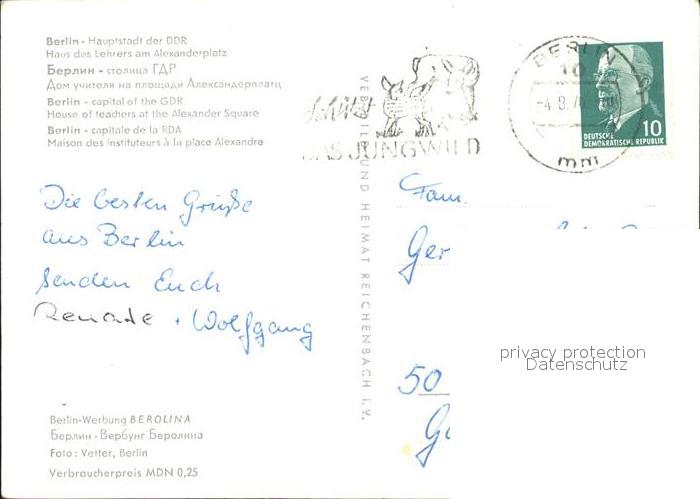 Berlin - Hauptstadt der DDR
Haus des Lehrers am Alexanderplatz
Берлин - столица ГДР
Дом учителя на площади Александерплатц
Berlin - capital of the GDR
House of teachers at the Alexander Square
Berlin - capitale de la RDA
Maison des instituteurs à la place Alexandre
Die besten Grüße
aus Berlin
senden Euch
Renate + Wolfgang
Berlin-Werbung BEROLINA
Берлин - Вербунг Беролина
Foto: Vetter, Berlin
Verbraucherpreis MDN 0,25
UND HEIMAT REICHENBACH I. V.
Schützt
DAS JUNGWILD
BERLIN
10
mm
10
DEUTSCHE
DEMOKRATISCHE REPUBLIK
Fam.
Ger
50
privacy protection
Datenschutz